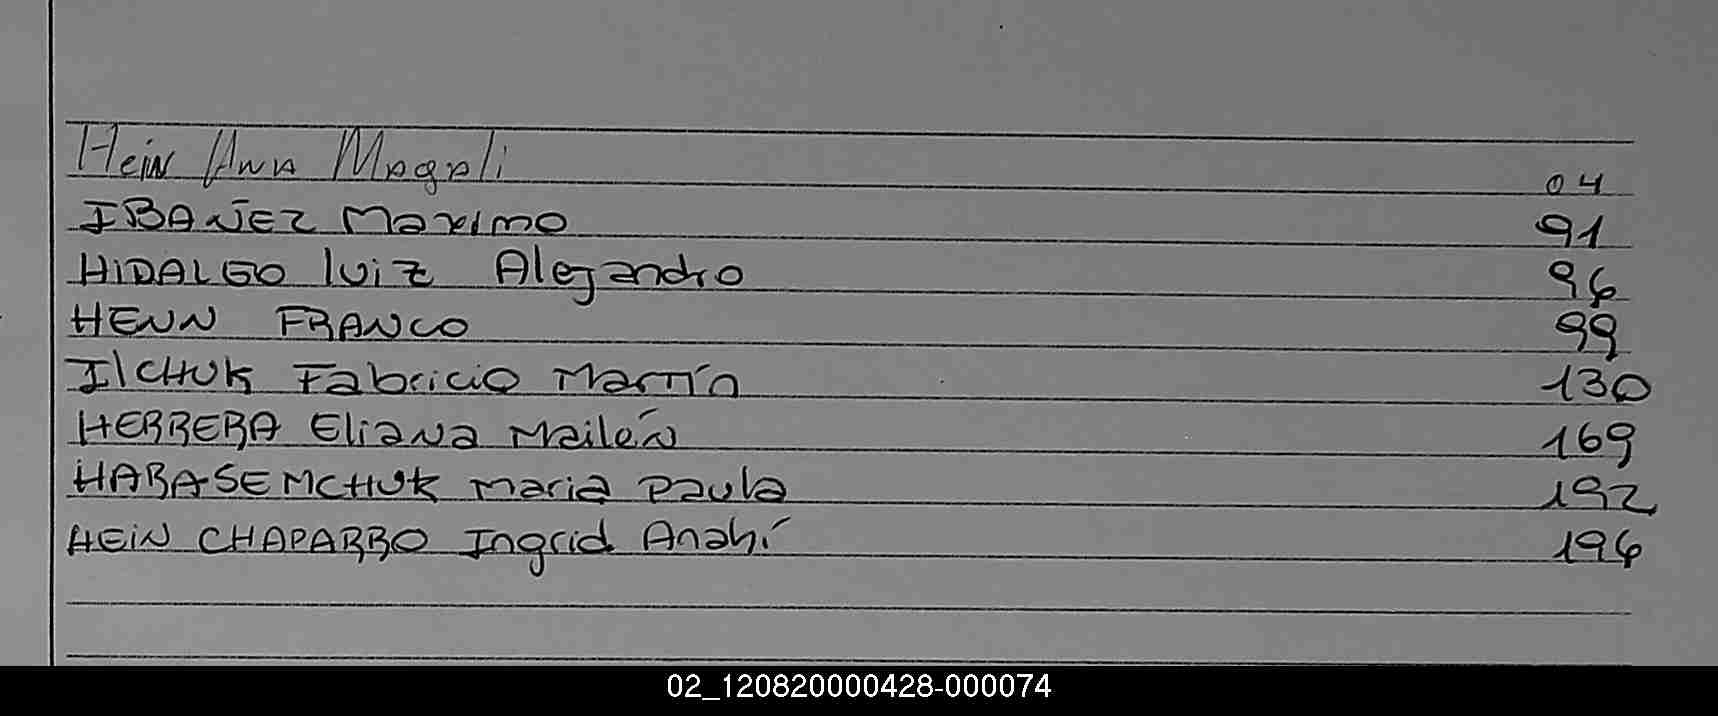 Hein Ana Magali 04
IBAÑEZ Maximo 91
HIDALGO luiz Alejandro 96
HENN FRANCO 99
IlCHUK Fabricio Martín 130
HERRERA Eliana Mailén 169
HARASEMCHUK Maria Paula 192
HEIN CHAPARRO Ingrid Anahí 196
02_120820000428-000074